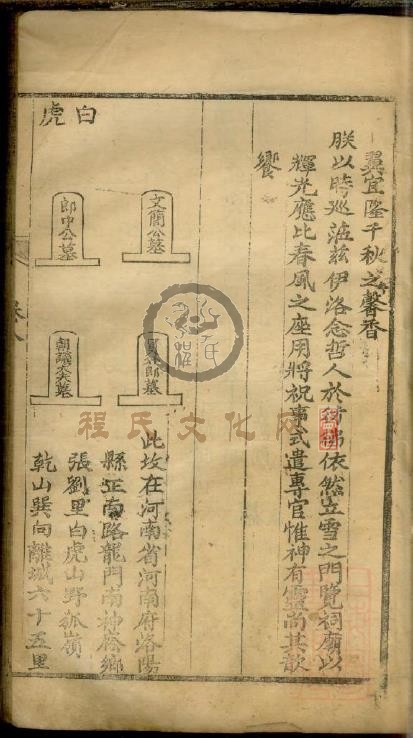 翼宜隆千秋之馨香
朕以時巡蒞兹伊洛念哲人於彷彿依然立雪之門覽祠廟以
輝光應比春風之座用將祝事式遣專官惟神有靈尚其歆
饗
白虎
文簡公墓
郎中公墓
郎墓
朝議大夫墓
此坟在河南省河南府洛陽
縣正南路龍門南神蔭鄉
張劉里白虎山野狐嶺
乾山巽向離城六十五里
程氏文化网